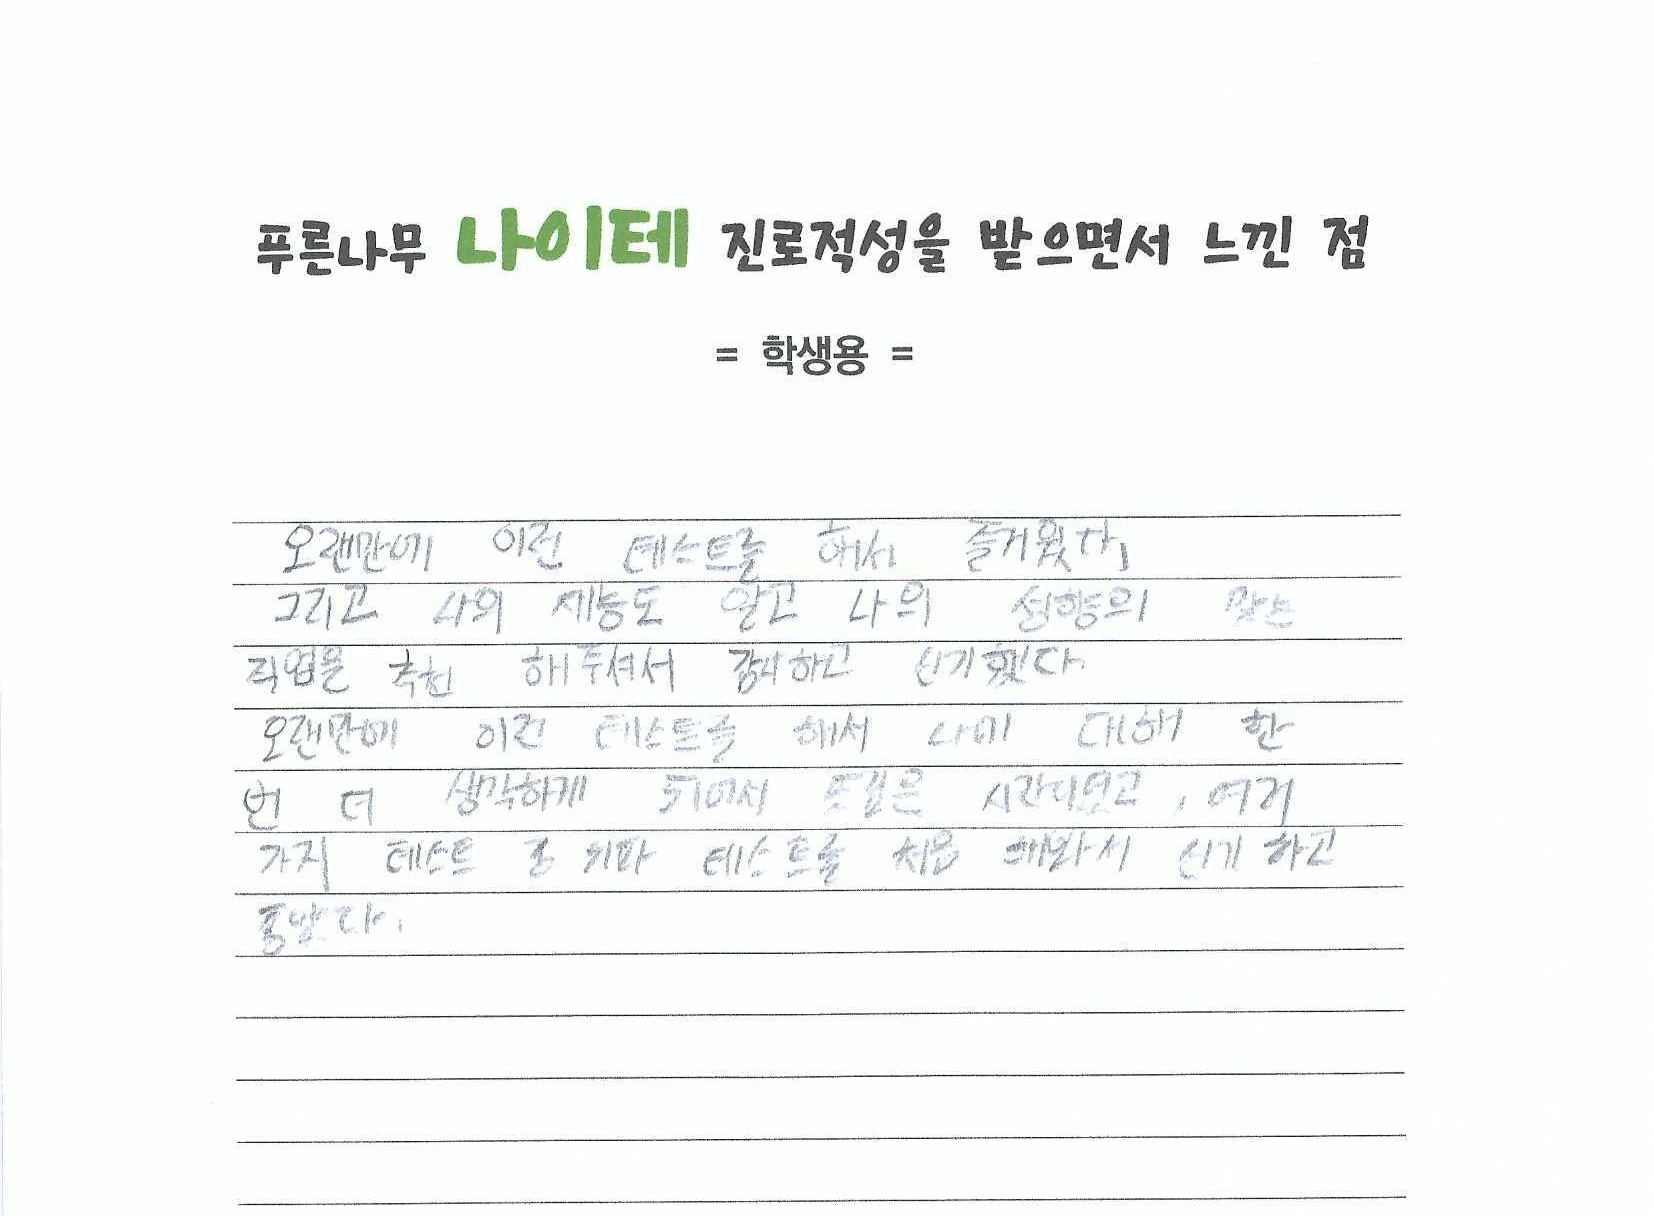 푸른나무 나이테 진로적성을 받으면서 느낀 점
= 학생용 =
오랜만에 이런 테스트를 해서 즐거웠다,
그리고 나의 재능도 알고 나의 성향의 맞는
직업을 추천 해주셔서 감사하고 신기했다.
오랜만에 이런 테스트를 해서 나에 대해 한
번 더 생각하게 되어서 뜻깊은 시간이였고, 여러
가지 테스트 중 테스트를 처음 해봐서 신기하고
좋았다.